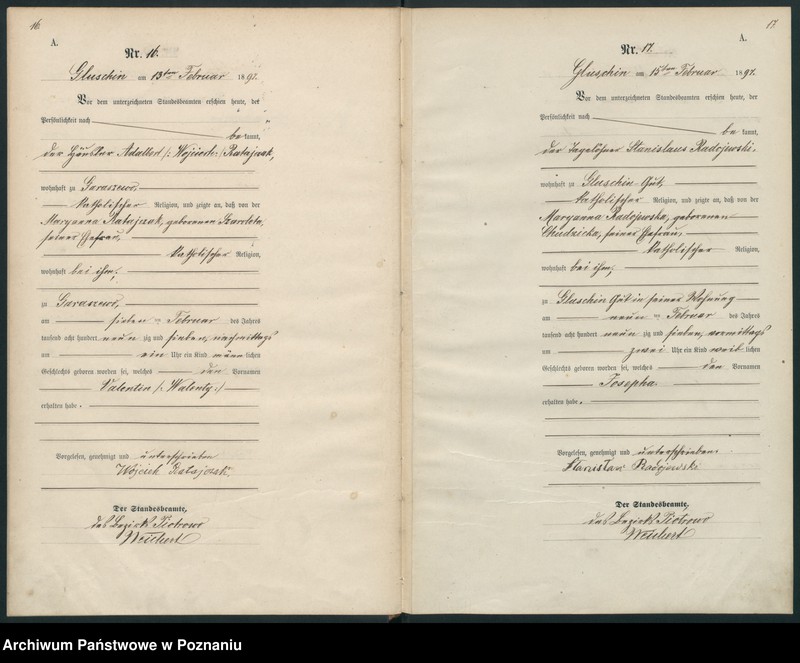 16.
A.
Nr. 16.
Gluschin am 13ten Februar 1897.
Vor dem unterzeichneten Standesbeamten erschien heute, der
Persönlichkeit nach
be kannt,
der Häusler Adalbert (: Wojciech :) Ratajczak,
wohnhaft zu Garaszewo,
katholischer Religion, und zeigte an, daß von der
Maryanna Ratajczak, geborenen
seiner Ehefrau,
katholischer Religion,
wohnhaft bei ihm,
zu Garaszewo,
am sieben ten Februar des Jahres
tausend acht hundert neun zig und sieben, nachmittags
um ein Uhr ein Kind männ lichen
Geschlechts geboren worden sei, welches den Vornamen
Valentin (: Walenty :)
erhalten habe.
Vorgelesen, genehmigt und unterschrieben
Wojciech Ratajczak.
Der Standesbeamte,
des Bezirks Piotrowo
17.
A.
Nr. 17.
Gluschin am 15ten Februar 1897.
Vor dem unterzeichneten Standesbeamten erschien heute, der
Persönlichkeit nach
be kannt,
der Tagelöhner Stanislaus Radojewski,
wohnhaft zu Gluschin Gut,
katholischer Religion, und zeigte an, daß von der
Maryanna Radojewska, geborenen
Chudzicka, seiner Ehefrau,
katholischer Religion,
wohnhaft bei ihm,
zu Gluschin Gut in seiner Wohnung
am neun ten Februar des Jahres
tausend acht hundert neun zig und sieben, vormittags
um zwei Uhr ein Kind weib lichen
Geschlechts geboren worden sei, welches den Vornamen
Josepha
erhalten habe.
Vorgelesen, genehmigt und unterschrieben
Stanisław Radojewski
Der Standesbeamte,
des Bezirks Piotrowo
Archiwum Państwowe w Poznaniu